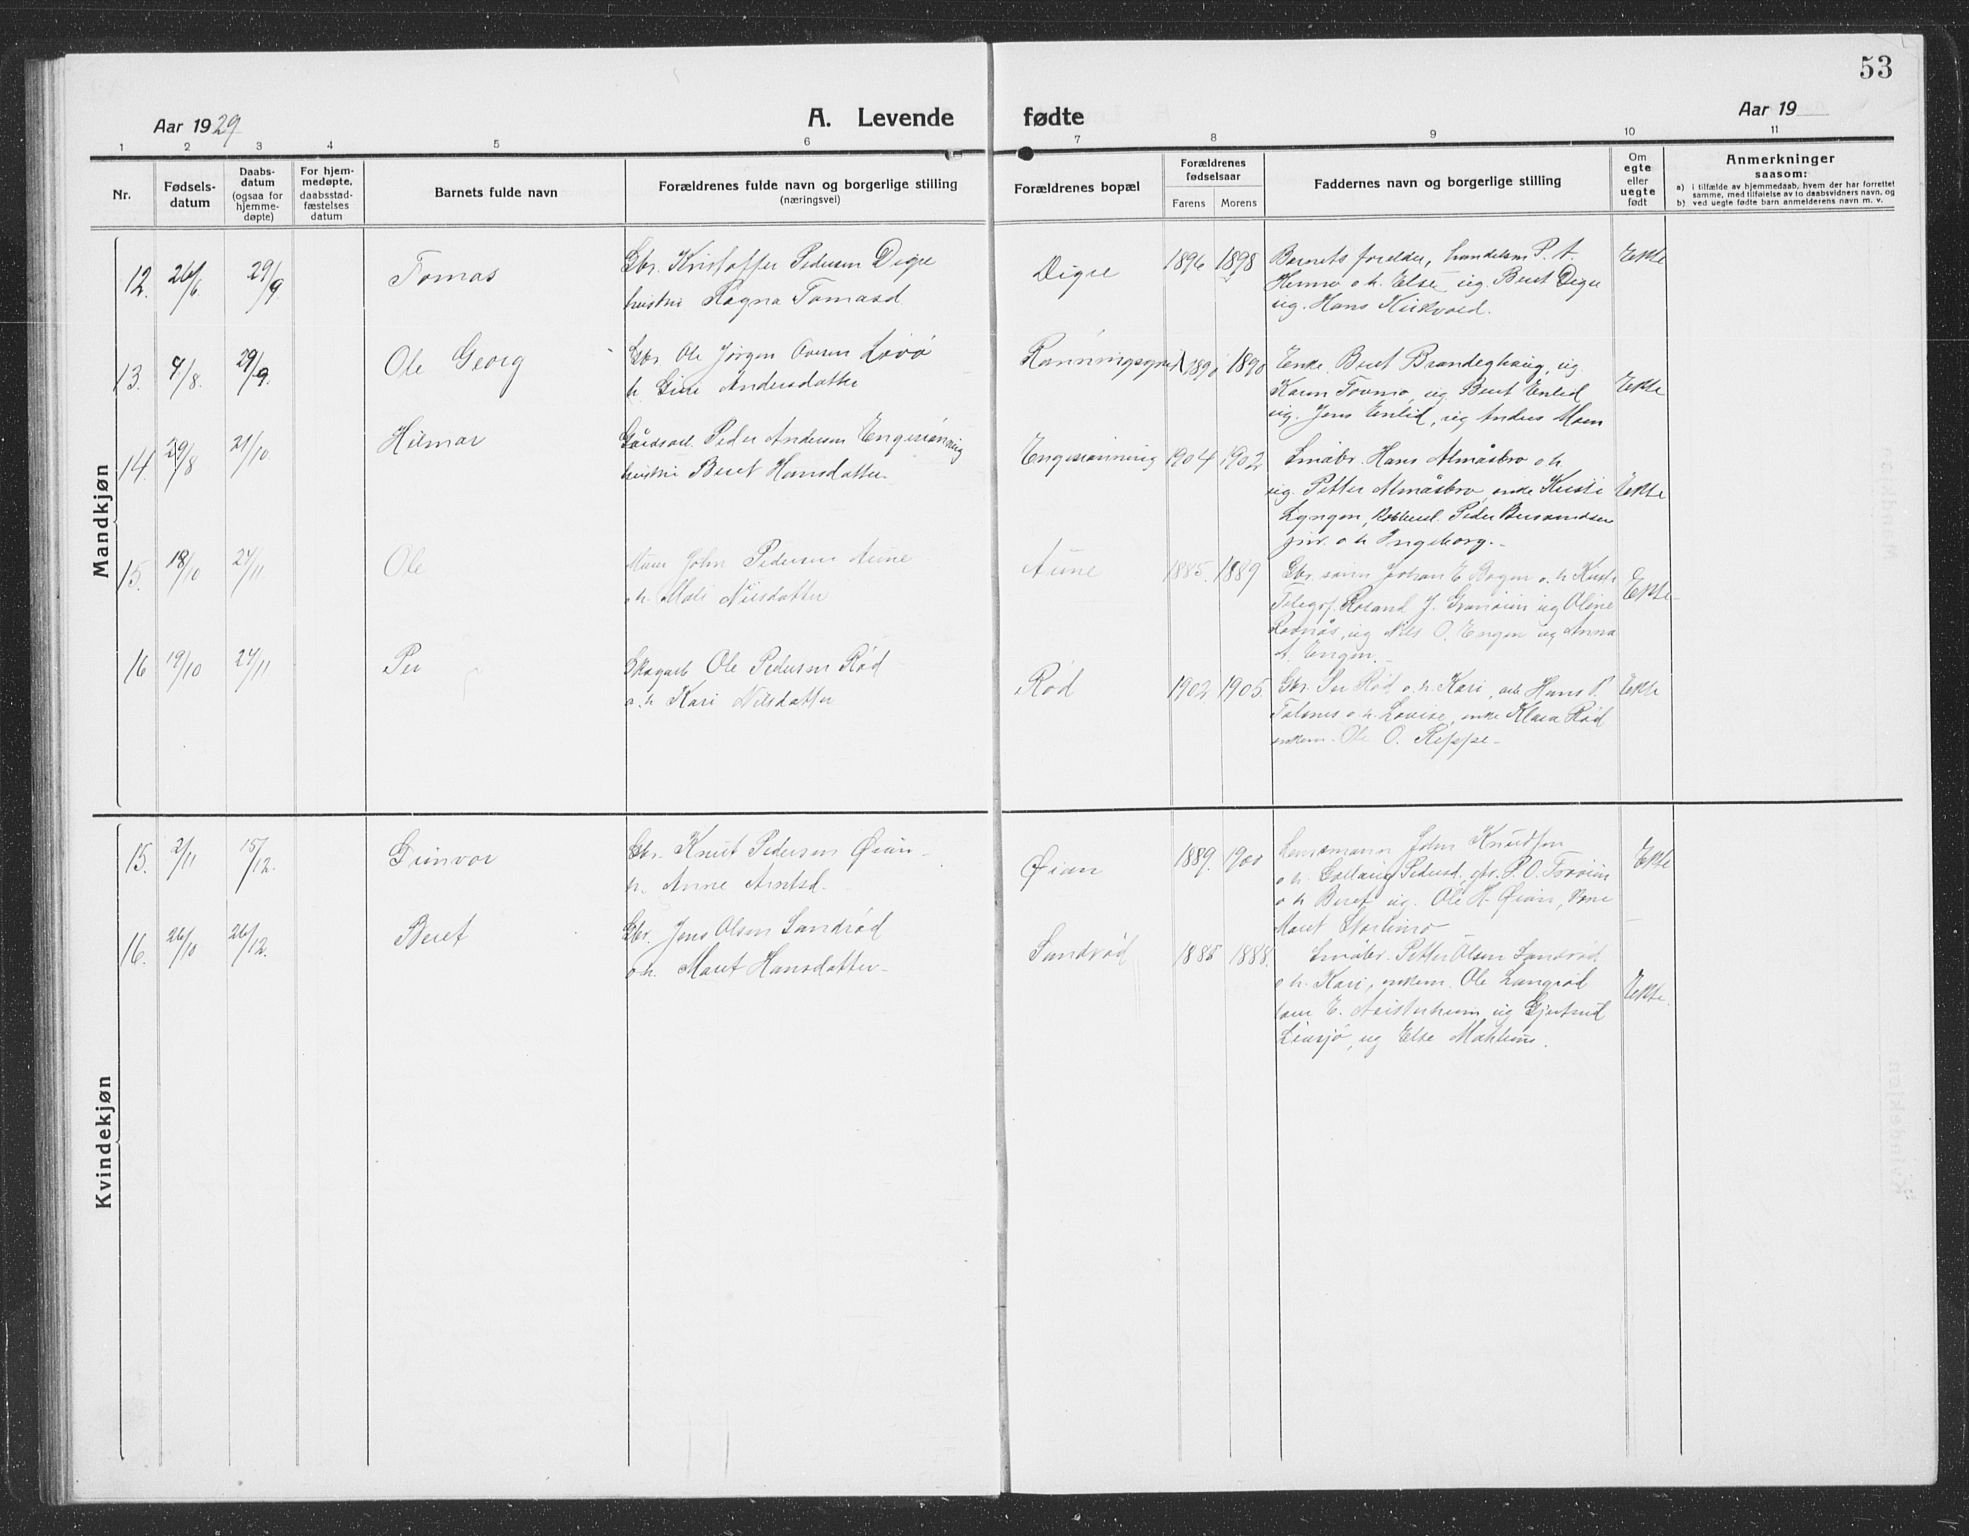 53
Aar 1929
A. Levende fødte
Aar 19
1 2 3 4 5 6 7 8 9 10 11
Nr.
Fødsels-
datum
Daabs-
datum
(ogsaa for
hjemme-
døpte)
For hjem-
medøpte,
daabsstad-
fæstelses
datum
Barnets fulde navn
Forældrenes fulde navn og borgerlige stilling
(næringsvei)
Forældrenes bopæl
Forældrenes
fødselsaar
Farens Morens
Faddernes navn og borgerlige stilling
Om
egte
eller
uegte
født
Anmerkninger
saasom:
a) i tilfælde av hjemmedaab, hvem der har forrettet
samme, med tilføielse av to daabsvidners navn, og
b) ved uegte fødte barn anmelderens navn m. v.
Mandkjøn
12. 26/6 29/9 Tomas
Gbr. Kristoffer Pedersen Digre
hustru Ragna Tomasd
Digre 1896 1898
Barnets forelder, handelsm P. A.
o h. Else ug. Beret Digre
ug. Hans Kirkvold.
Ekte
13. 9/8. 29/9. Ole Georg
Gbr Ole Jørgen Løvø
h. Andersdatter
1890 1890
Enke Beret Brandeghaug, ug.
Karen ug Beret Enlid
ug. Jens Enlid, ug Anders Moen
Ekte
14. 29/8 21/10 Hilmar
Peder Andersen Engesrønning
hustru Beret Hansdatter
Engesrønning 1904 1902
Småbr. Hans Almåsbro o h.
ug. Petter Almåsbro, enke Kirsti
Lyngen, Peder
jnr. o h Ingeborg.
Ekte
15. 18/10 24/11 Ole
Murer John Pedersen Aune
o h. Mali Nilsdatter
Aune 1885. 1889
Gbr. Johan E o. h
J. ug Oline
ug Nils O. Engen ug Anna
A. Engen.
Ekte
16 19/10 24/11 Per
Skogarb Ole Pedersen Rød
o. h Kari Nilsdatter
Rød 1902 1905
Gbr. Per Rød o. h. Kari, arb Hans P.
o. h. Lovise, enke Klara Rød
enkem. Ole O. Reppe
Ekte
Kvindekjøn
15. 2/11 15/12. Gunvor
Gbr. Knut Pedersen Øian
h. Anne Arntsd.
Øian 1889. 1900
Lensmann John Knudsen
o h. Pedersd, gbr. P. O.
o h Beret ug. Ole H. Øian,
Maret
Ekte
16. 26/10 26/12. Beret
Gbr. Jens Olsen Sandrød
o h. Maret Hansdatter
Sandrød 1885 1888.
Småbr. Petter Olsen Sandrød
o h. Kari, enkem. Ole Langrød
E. ug Gjertrud
ug Else
Ekte.